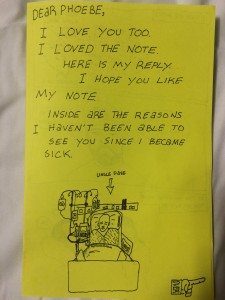 DEAR PHOEBE,
I LOVE YOU TOO.
I LOVED THE NOTE.
HERE IS MY REPLY.
I HOPE YOU LIKE
MY NOTE
INSIDE ARE THE REASONS
I HAVEN'T BEEN ABLE TO
SEE YOU SINCE I BECAME
SICK.
UNCLE DAVE